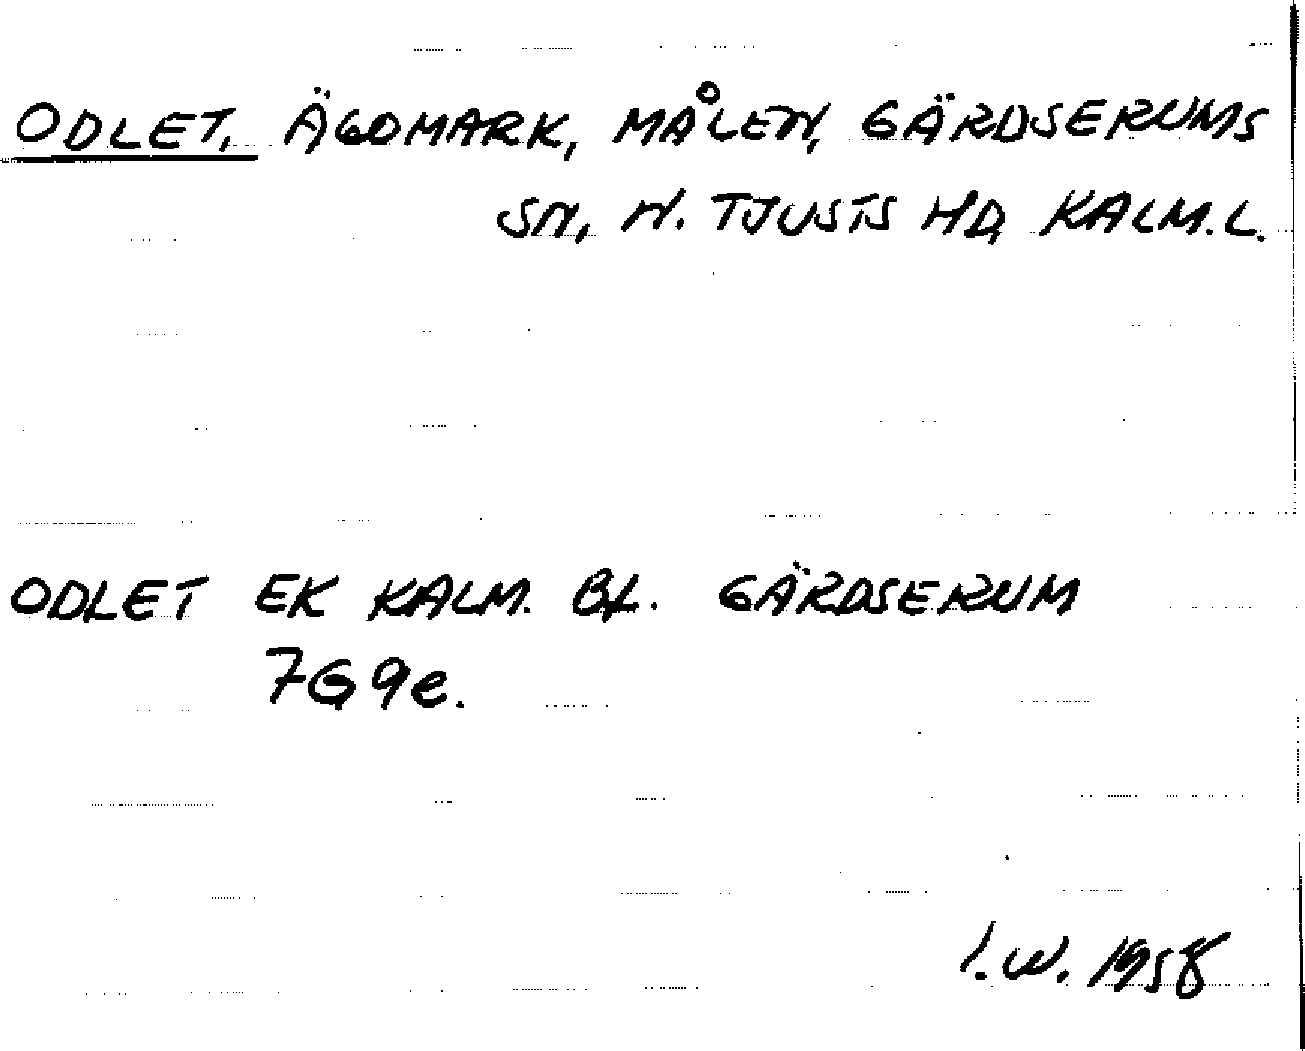 ODLET, ÄGOMARK, MÅLEN, GÄRDSERUMS
SN, N. TJUSTS HD, KALM.L.
ODLET EK KALM. BL. GÄRDSERUM
7G9e.
I.W. 1958